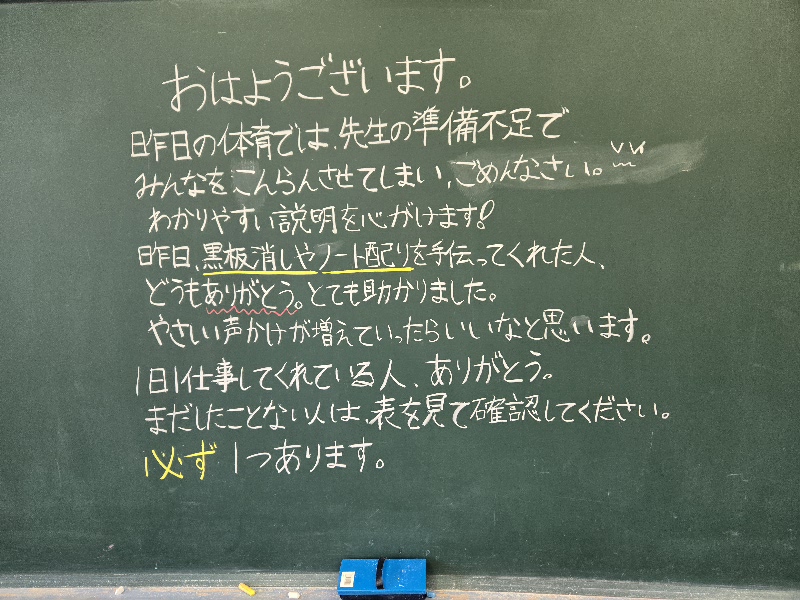 おはようございます。
昨日の体育では、先生の準備不足で
みんなをこんらんさせてしまい、ごめんなさい。
わかりやすい説明を心がけます!
昨日、黒板消しやノート配りを手伝ってくれた人、
どうもありがとう。とても助かりました。
やさしい声かけが増えていったらいいなと思います。
1日1仕事してくれている人、ありがとう。
まだしたことない人は、表を見て確認してください。
必ず1つあります。